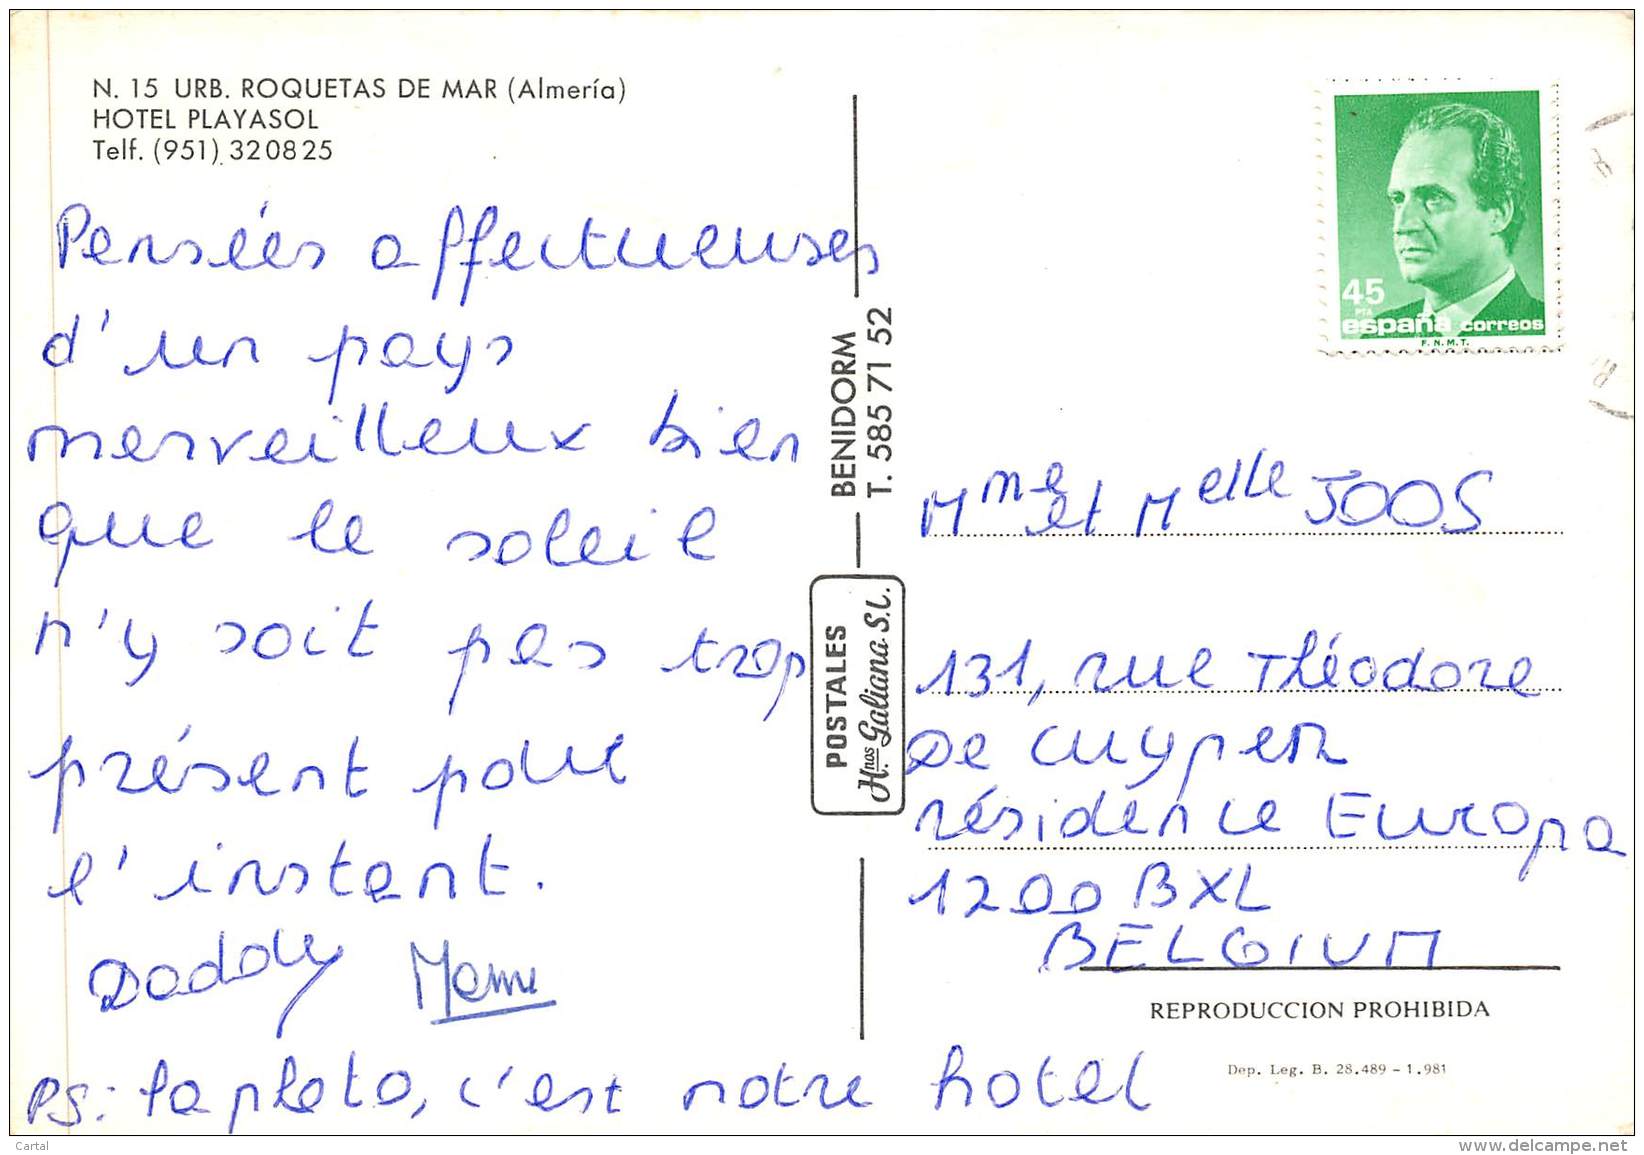 N. 15 URB. ROQUETAS DE MAR (Almería)
HOTEL PLAYASOL
Telf. (951) 320825
Pensées affectueuses
d'un pays
merveilleux bien
que le soleil
n'y soit pas trop
présent pour
l'instant.
Daddy Mamu
PS: la photo, c'est notre hotel
BENIDORM
T. 585 71 52
POSTALES
Hnos Galiana S.L.
45
PTA
españa correos
F.N.M.T.
Mme et Melle JOOS
131, rue Théodore
De Cuyper
résidence Europa
1200 BXL
BELGIUM
REPRODUCCION PROHIBIDA
Dep. Leg. B. 28.489 - 1.981
Cartal
delcampe.net